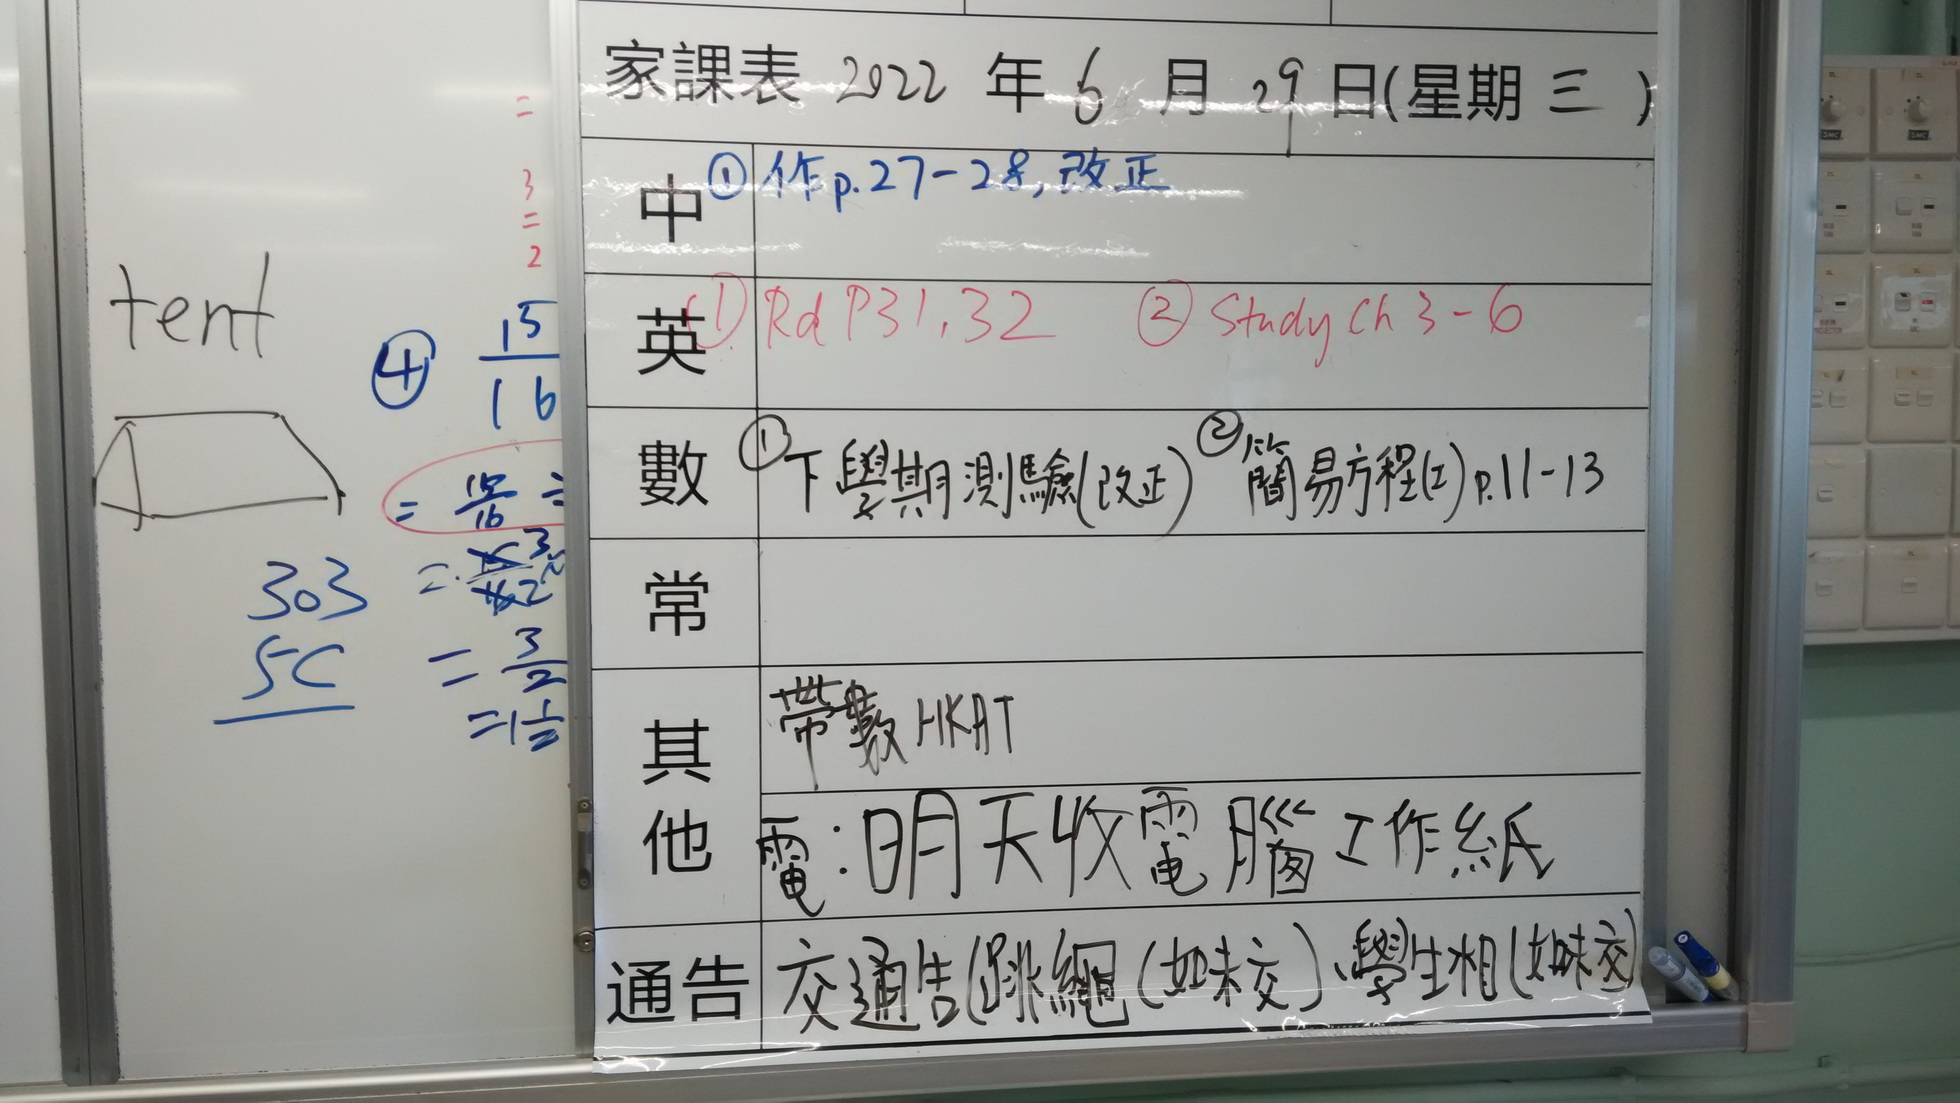 家課表 2022 年 6 月 29 日(星期 三 )
中 ① 作p.27-28, 改正
英 ① Rd P31,32 ② Study Ch 3-6
數 ① 下學期測驗(改正) ② 簡易方程(I) p.11-13
常
其他 帶數 HKAT
電:明天收電腦工作紙
通告 交通告(跳繩(如未交)、學生相(如未交)
tent
303
5C
=
3
=
2
④ 15
16
= 15/16 ÷
= 3/2
=1 1/2